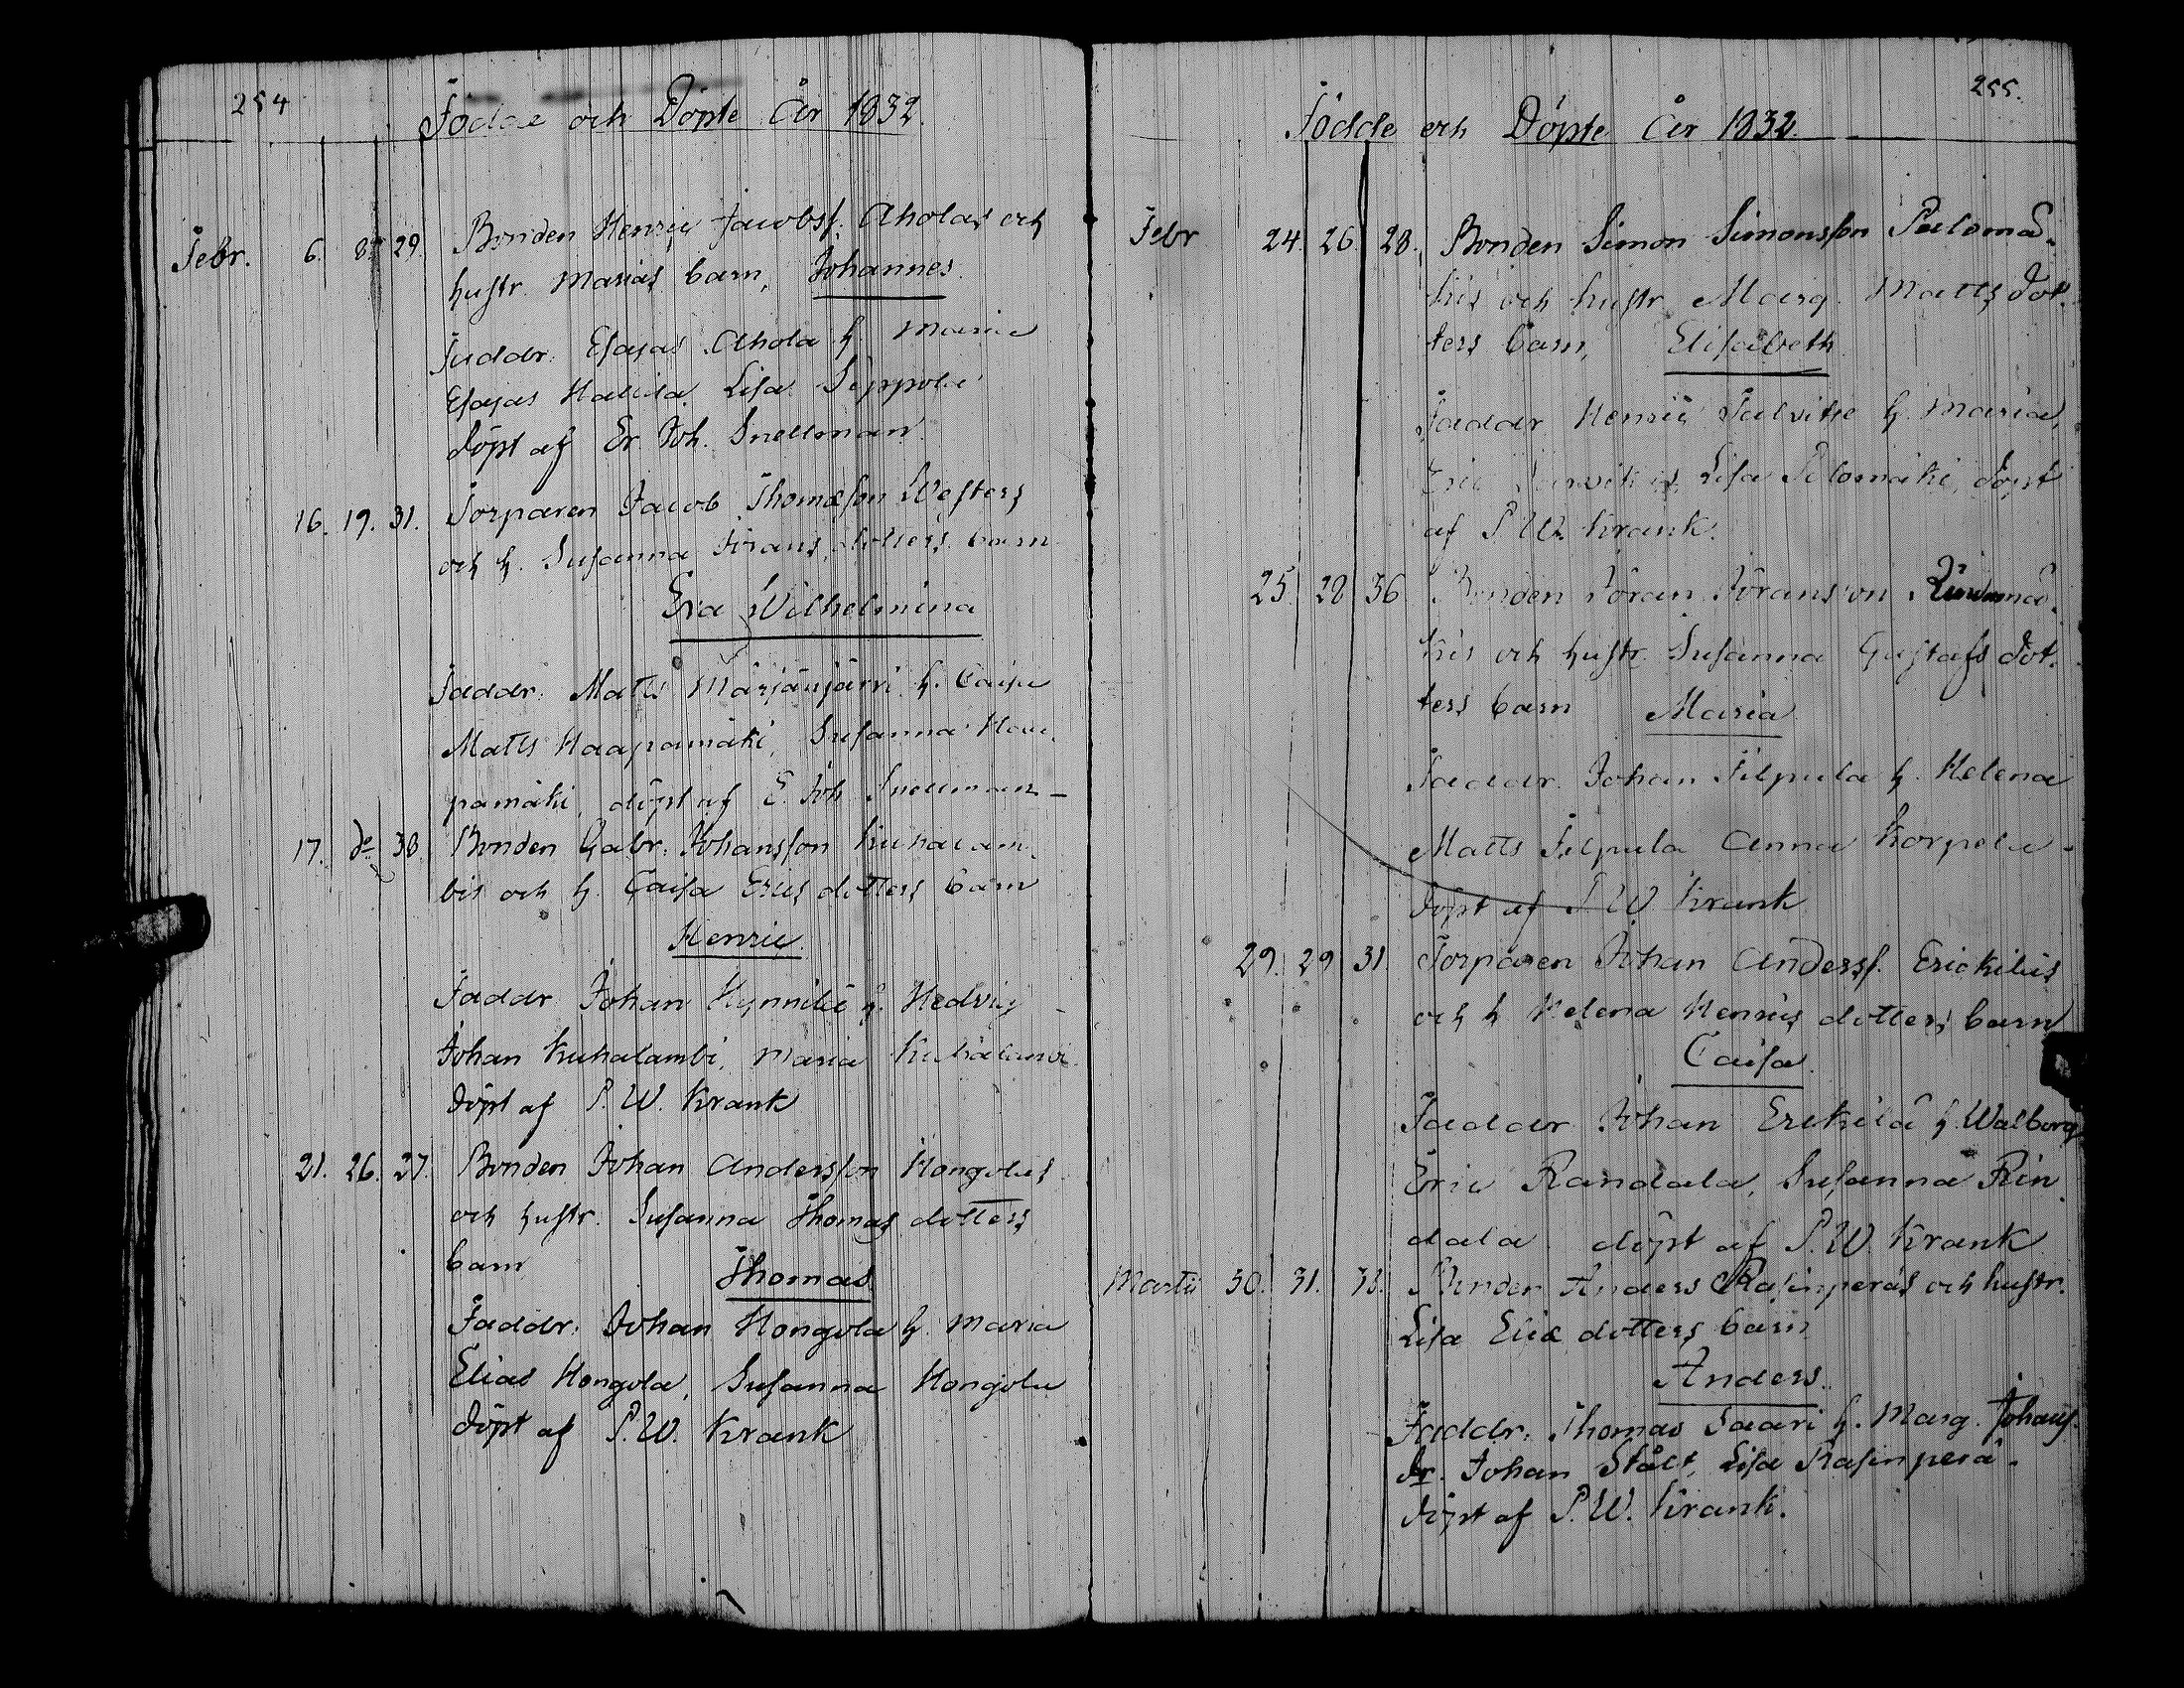 254
Födde och Döpte År 1832.
Febr. 6. 8. 29. Bonden Henric Jacobss. Aholas och
hustr. Marias barn, Johannes
Faddr. Esajas Ahola h. Maria
Esajas Lisa Seppola
döpt af Er. Joh. Snellman
16. 19. 31. Torparen Jacob Thomasson Westers
och h. Susanna Jörans dotters barn
Eva Wilhelmina
Faddr. Matts Marjanjärvi h. Caisa
Matts Haapamäki, Susanna Haa-
pamäki, döpt af E. Joh. Snellman
17. do 38. Bonden Gabr. Johansson Kuhalam-
bis och h. Caisa Erics dotters barn
Henric.
Faddr. Johan Hynnilä h. Hedvig
Johan Kuhalambi, Maria Kuhalambi
döpt af P. W. Krank
21. 26. 27. Bonden Johan Andersson Hongolas
och hustr. Susanna Thomas dotters
barn Thomas
Faddr. Johan Hongola h. Maria
Elias Hongola, Susanna Hongola
döpt af P. W. Krank
255.
Födde och Döpte År 1832.
Febr 24. 26. 28. Bonden Simon Simonsson Palomä-
kis och hustr. Marg. Matts dot-
ters barn, Elisabeth
Faddr. Henric h. Maria,
Eric Lisa Palomäki, döpt
af P. W. Krank.
25. 28. 36. Bonden Jöran Jöransson
kis och hustr. Susanna Gustafs dot-
ters barn Maria
Faddr. Johan Filpula h. Helena
Matts Filpula Anna Korpela
döpt af P. W. Krank
29. 29. 31. Torparen Johan Anderss. Erickilas
och h Helena Henrics dotters barn
Caisa.
Faddr Johan Erickilä h. Walborg
Eric Randala, Susanna Rin-
dala döpt af P. W. Krank
Martii 30. 31. 38. Bonden Anders Rasinperäs och hustr.
Lisa Eliæ dotters barn
Anders.
Faddr. Thomas Saari h. Marg. Johans
dr. Johan Stålt, Lisa Rasinperä
döpt af P. W. Krank.